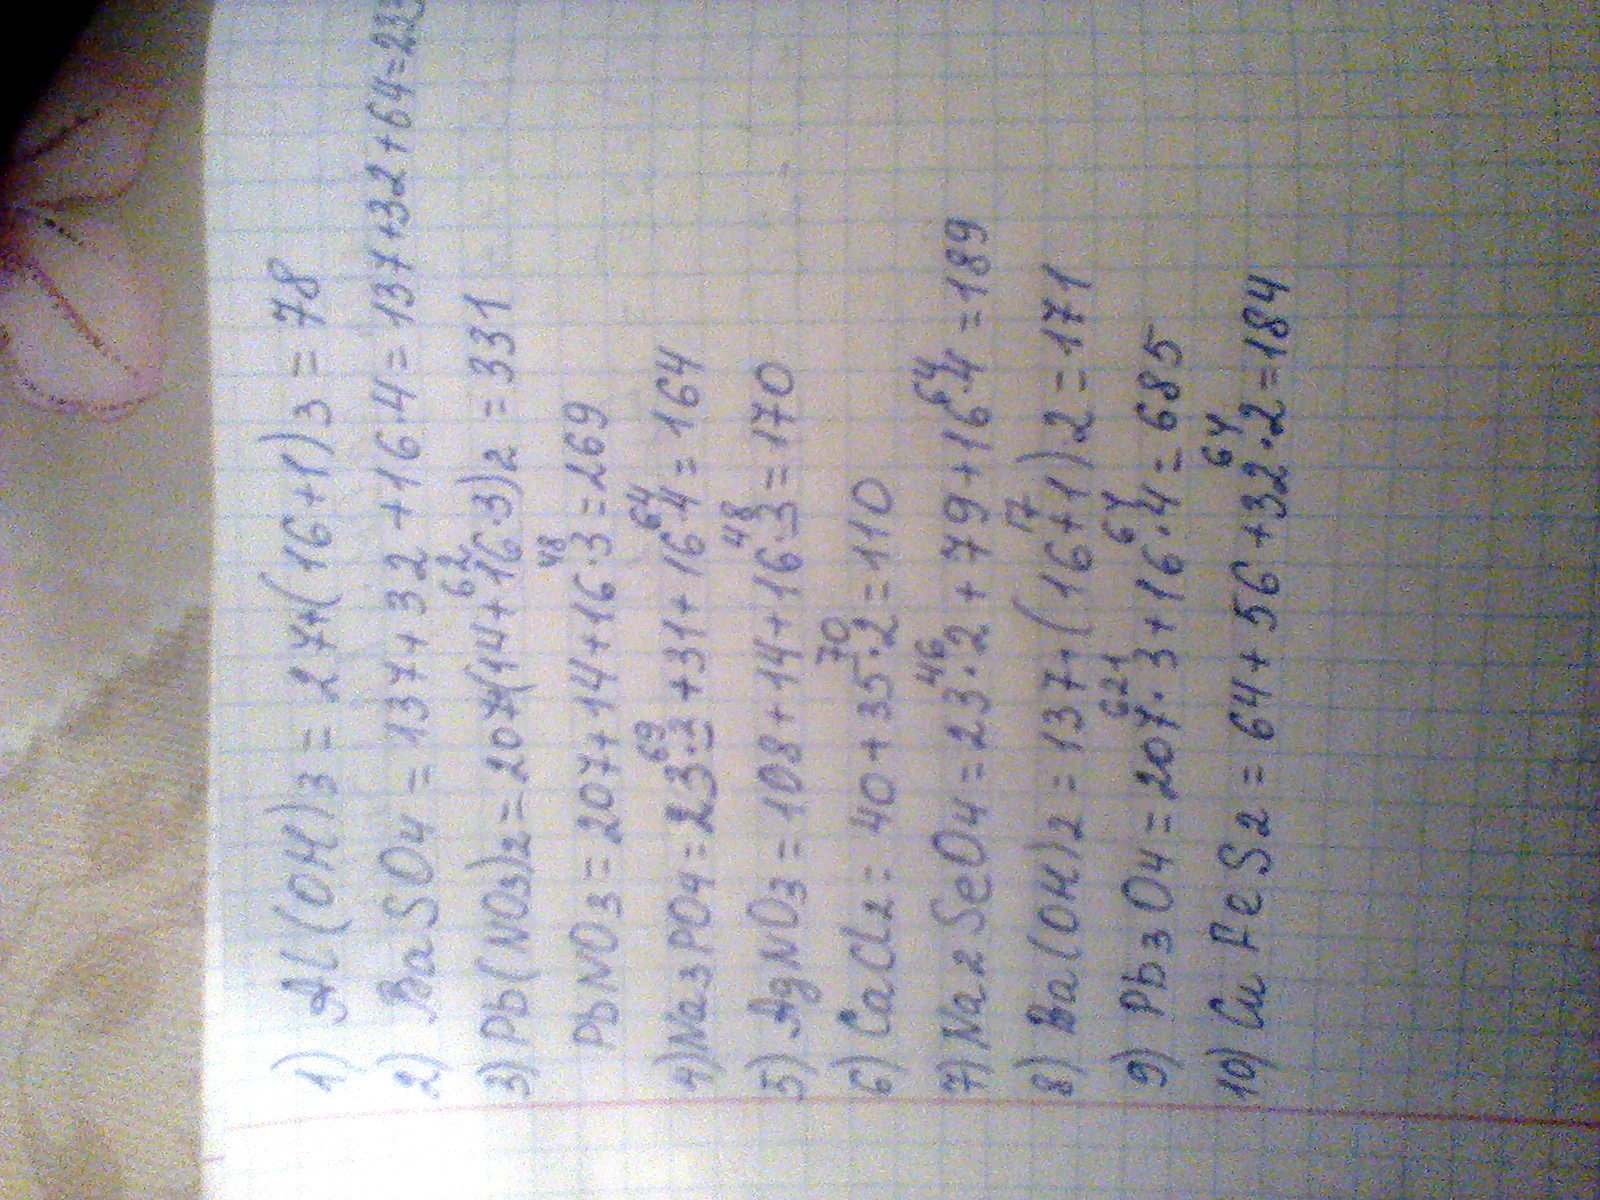 1) Al(OH)3 = 27+(16+1)3 = 78
2) BaSO4 = 137+32+16·4=137+32+64=233
62
3) Pb(NO3)2=207+(14+16·3)2 = 331
48
PbNO3=207+14+16·3=269
69 64
4) Na3PO4=23·3+31+16·4=164
48
5) AgNO3=108+14+16·3=170
70
6) CaCl2=40+35·2=110
46 64
7) Na2SeO4=23·2+79+16·4=189
17
8) Ba(OH)2=137+(16+1)·2=171
621 64
9) Pb3O4=207·3+16·4=685
64
10) CuFeS2=64+56+32·2=184